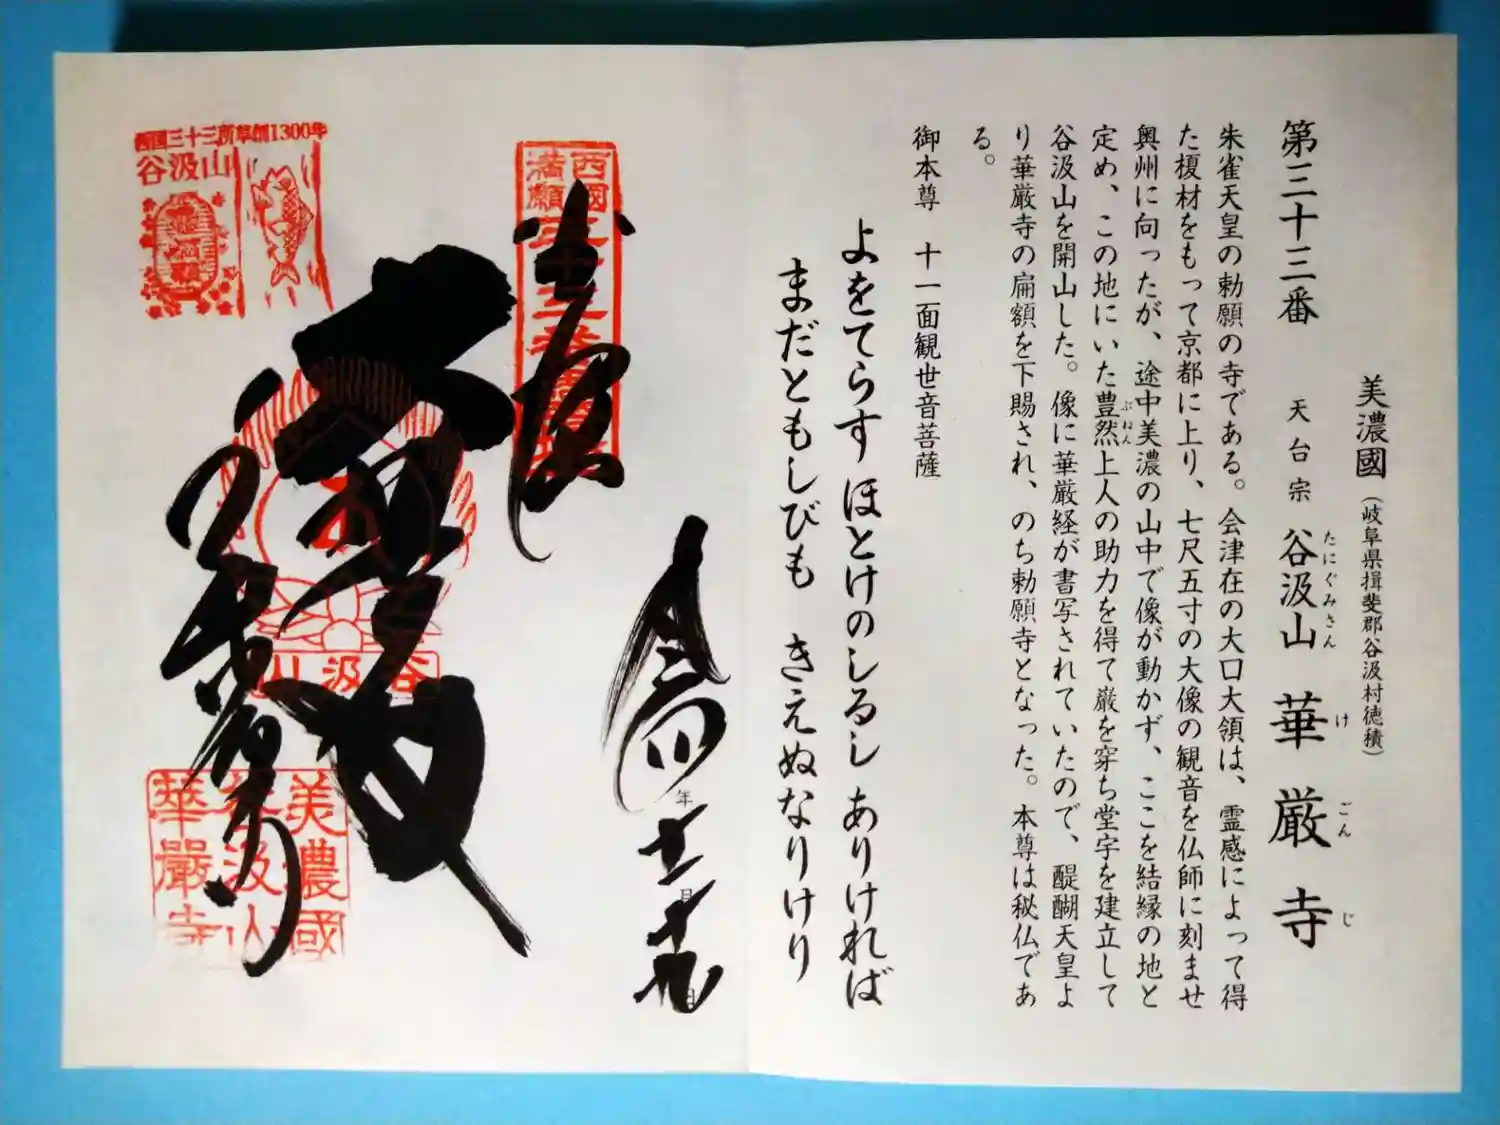 美濃國（岐阜県揖斐郡谷汲村徳積）
第三十三番　天台宗　谷汲山　華厳寺
たにぐみさん　けごんじ
朱雀天皇の勅願の寺である。会津在の大口大領は、霊感によって得
た榎材をもって京都に上り、七尺五寸の大像の観音を仏師に刻ませ
奥州に向ったが、途中美濃の山中で像が動かず、ここを結縁の地と
定め、この地にいた豊然上人の助力を得て厳を穿ち堂宇を建立して
ぶねん
谷汲山を開山した。像に華厳経が書写されていたので、醍醐天皇よ
り華厳寺の扁額を下賜され、のち勅願寺となった。本尊は秘仏であ
る。
御本尊　十一面観世音菩薩
よをてらす ほとけのしるし ありければ
まだともしびも　きえぬなりけり
年
月
日
西國
満願
三十三番
西国三十三所草創1300年
谷汲山
谷汲山
美濃國
谷汲山
華嚴寺